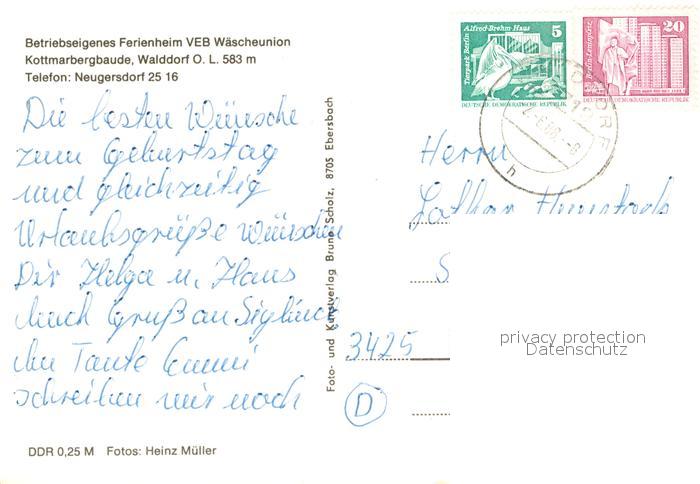 Betriebseigenes Ferienheim VEB Wäscheunion
Kottmarbergbaude, Walddorf O. L. 583 m
Telefon: Neugersdorf 25 16
Die besten Wünsche
zum Geburtstag
und gleichzeitig
Urlaubsgrüße wünschen
Dir Helga u. Hans
Auch Gruß an Sieglinde
An Tante Emmi
schreiben wir noch
DDR 0,25 M Fotos: Heinz Müller
Foto- und Kunstverlag Bruno Scholz, 8705 Ebersbach
Tierpark Berlin
Alfred-Brehm-Haus
5
DEUTSCHE DEMOKRATISCHE REPUBLIK
Berlin-Leninplatz
20
DEUTSCHE DEMOKRATISCHE REPUBLIK
h
Herrn
Lothar
S
3425
D
privacy protection
Datenschutz